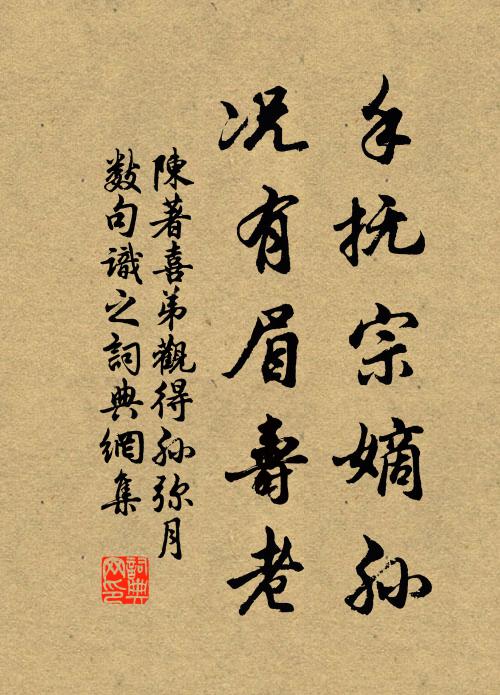 手抚宗嫡孙
况有眉壽老
陳著喜弟觀得孙弥月
数句識之詞典網集
詞典
网印